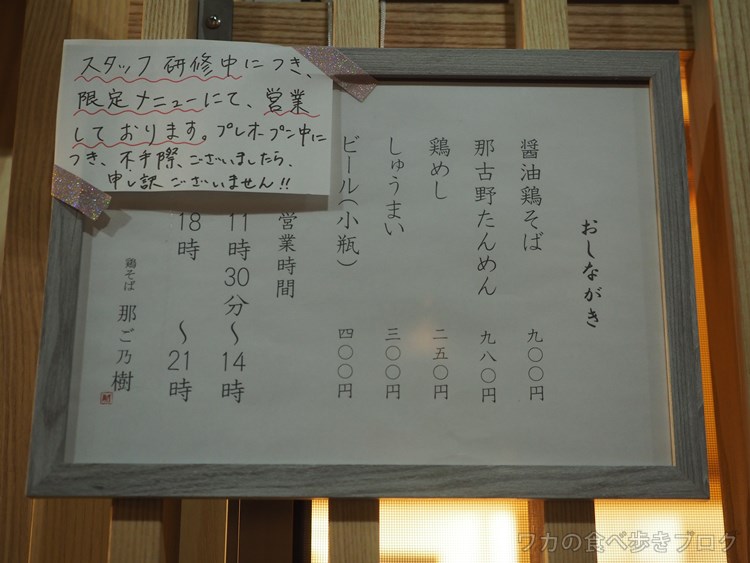 スタッフ研修中につき、
限定メニューにて、営業
しております。プレオープン中に
つき、不手際、ございましたら、
申し訳ございません!!
おしながき
醤油鶏そば 九〇〇円
那古野たんめん 九八〇円
鶏めし 二五〇円
しゅうまい 三〇〇円
ビール(小瓶) 四〇〇円
営業時間
11時30分～14時
18時 ～21時
鶏そば 那ご乃樹
ワカの食べ歩きブログ